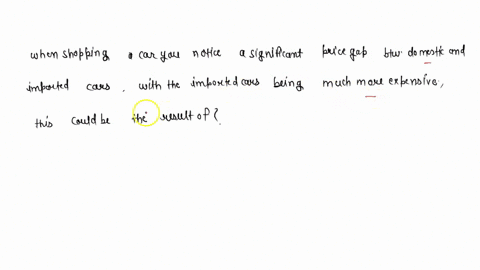 when shopping a car you notice a significant price gap btw. domestic and
imported cars, with the imported cars being much more expensive,
this could be the result of?